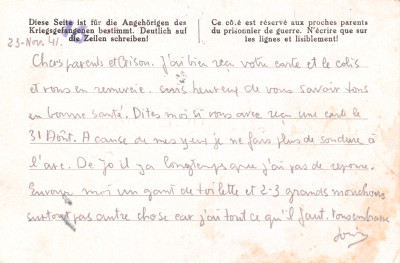 Diese Seite ist für die Angehörigen des
Kriegsgefangenen bestimmt. Deutlich auf
die Zeilen schreiben!
Ce côté est réservé aux proches parents
du prisonnier de guerre. N'écrire que sur
les lignes et lisiblement!
23-Nov 41.
Chers parents et . J'ai bien reçu votre carte et le colis
et vous en remercie. suis heureux de vous savoir tous
en bonne santé. Dites moi si vous avez reçu une carte le
31 Août. A cause de mes yeux je ne fais plus de soudure à
l'arc. De il y a longtemps que j'ai pas de reponse.
Envoyer moi un gant de toilette et 2-3 grands mouchoirs
surtout pas autre chose car j'ai tout ce qu'il faut.